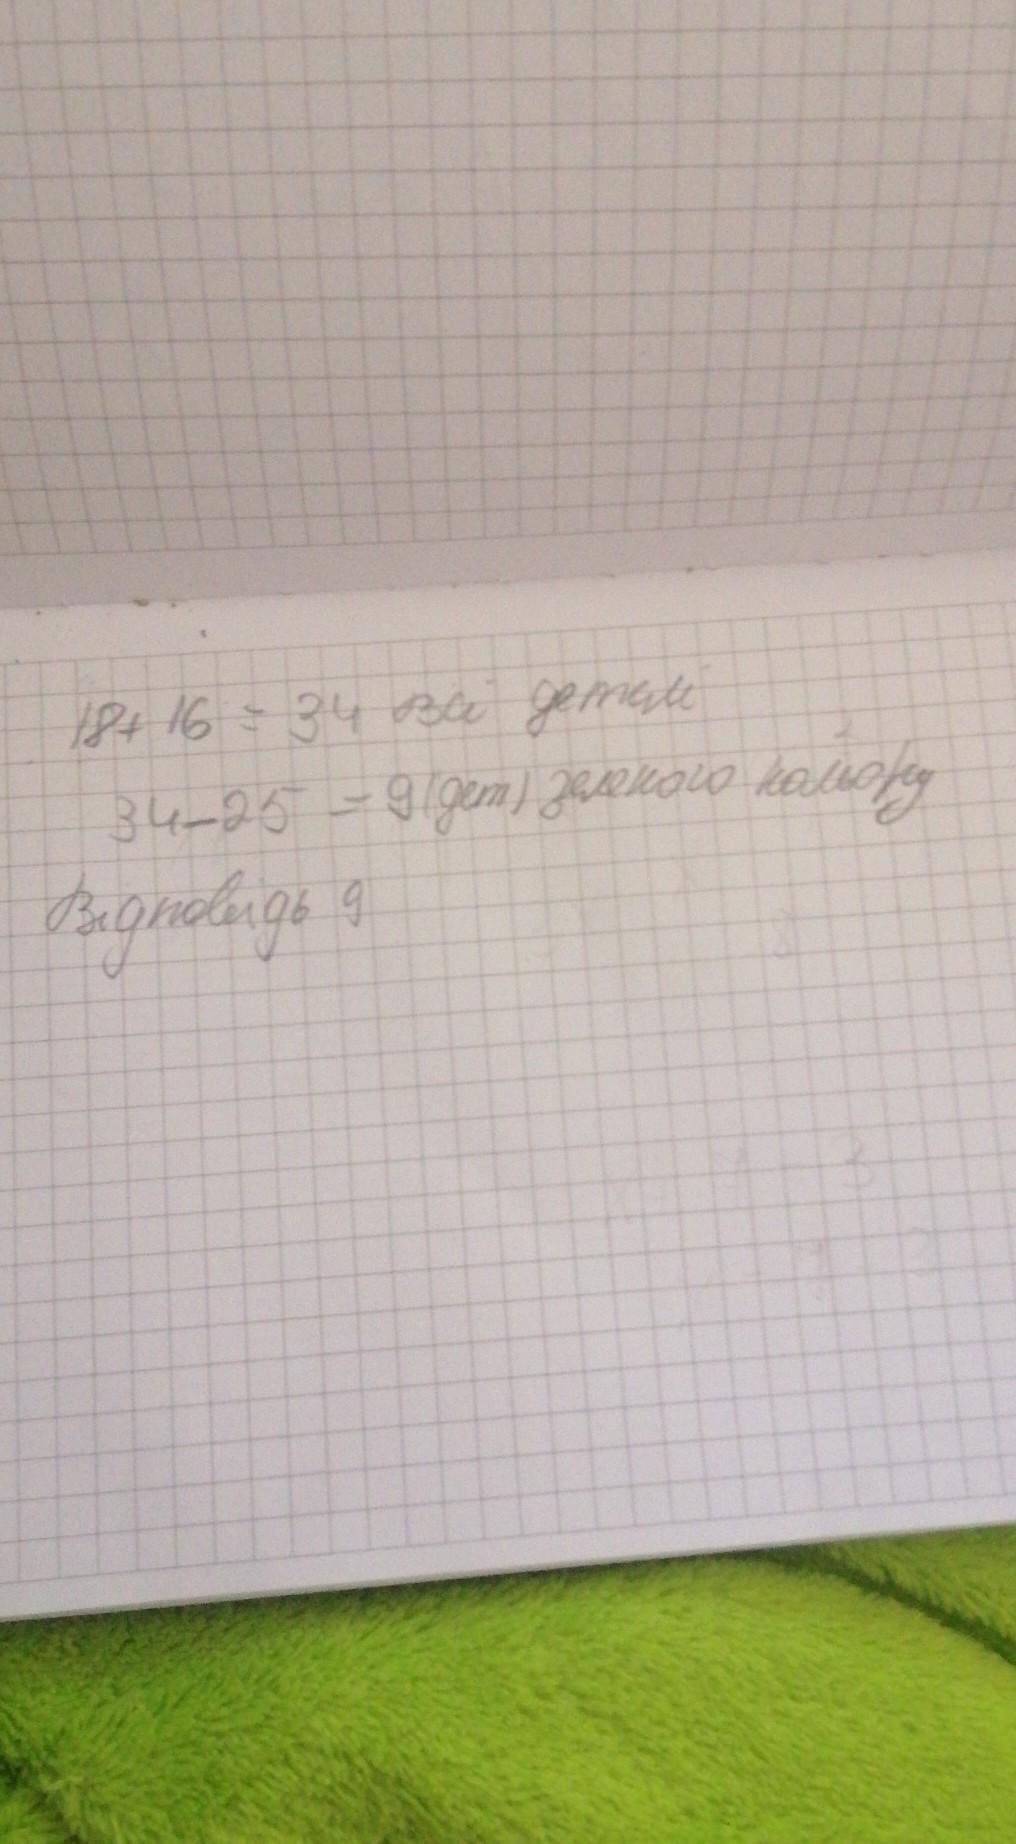 18+ 16 = 34 всі деталі
34-25 = 9 (дет) зеленого кольору
Відповідь 9